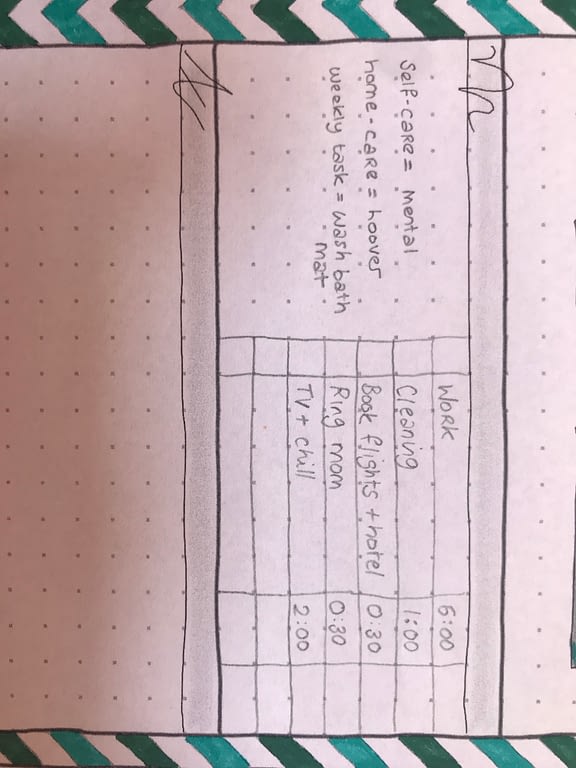 Self-care = mental
home-care = hoover
weekly task = wash bath
mat
Work 6:00
Cleaning 1:00
Book flights + hotel 0:30
Ring mom 0:30
TV + chill 2:00